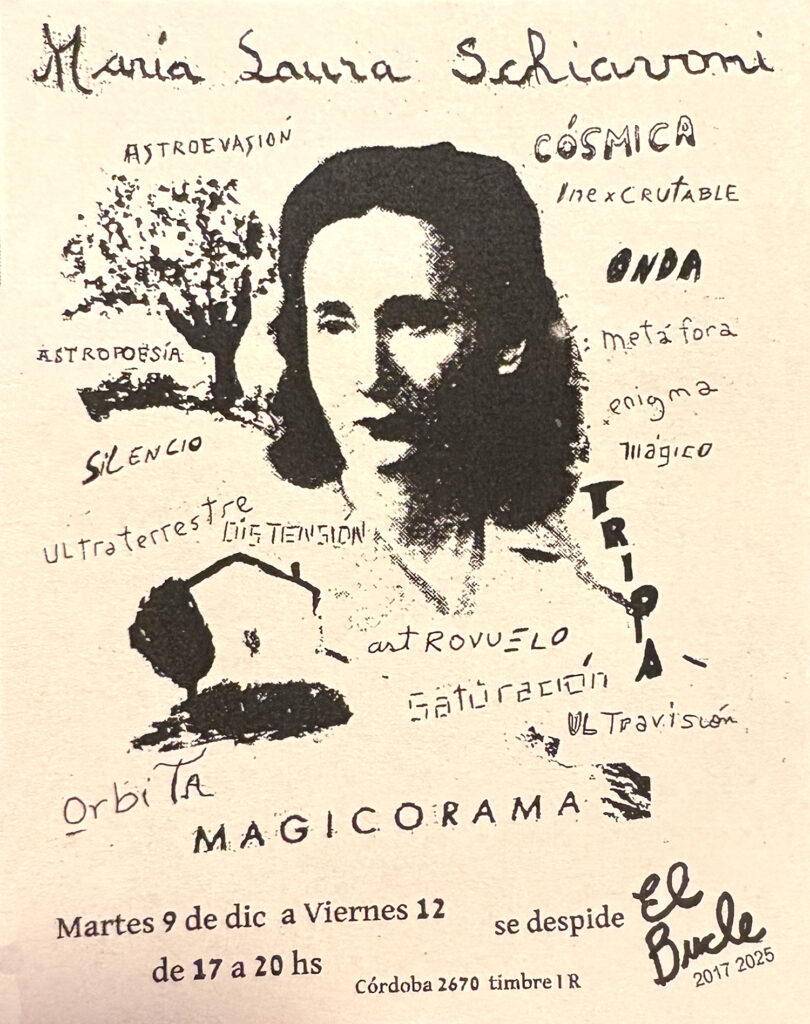 María Laura Schiavoni
ASTROEVASIÓN
CÓSMICA
InexCRUTABLE
ONDA
ASTROPOESÍA
: metáfora
enigma
mágico
SiLENCIO
ULtraterrestre
DISTENSIÓN
TRIPA
astROVUELO
Saturación
ULTravisión
OrbiTA
MAGICORAMA
Martes 9 de dic a Viernes 12
de 17 a 20 hs
se despide
El
Bucle
2017 2025
Córdoba 2670 timbre 1 R